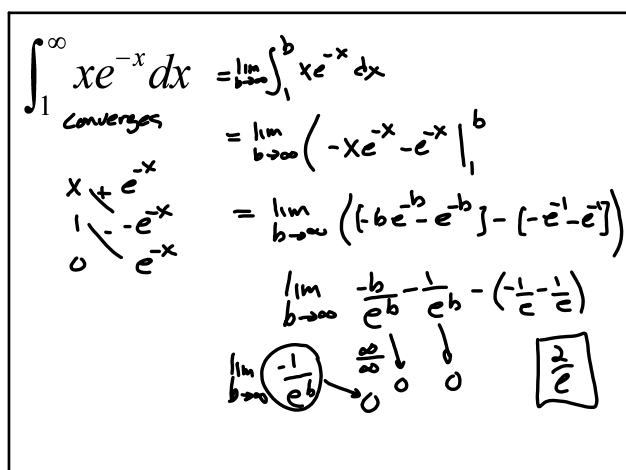 ∫_1^∞ xe^{-x} dx = lim_{b→∞} ∫_1^b xe^{-x} dx
Converges
= lim_{b→∞} ( -xe^{-x} - e^{-x} |_1^b
x + e^{-x}
1 - -e^{-x}
0 e^{-x}
= lim_{b→∞} ([-be^{-b} - e^{-b}] - [-e^{-1} - e^{-1}])
lim_{b→∞} -b/e^b - 1/e^b - (-1/e - 1/e)
∞/∞ 0 0
lim_{b→∞} -1/e^b 0
2/e